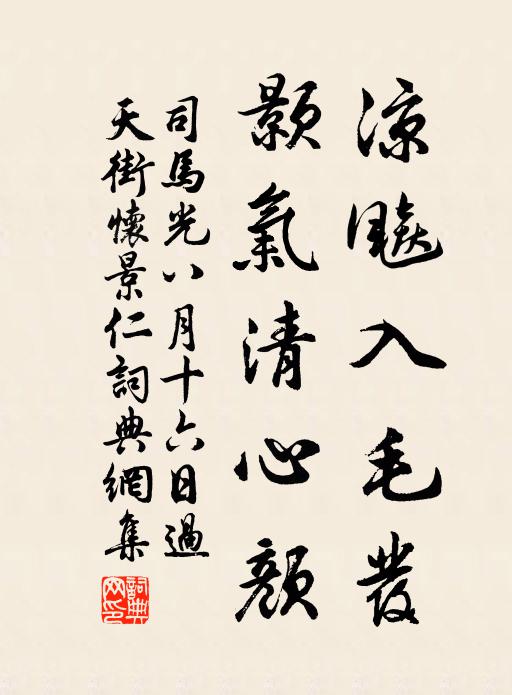 涼飇入毛發
顥氣清心顏
司馬光八月十六日過
天街懷景仁詞典網集
詞典網印